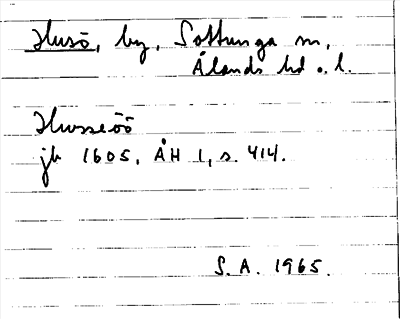 Husö, by, Sottunga sn,
Ålands hd o. l.
Husseöö
jb 1605, ÅH 1, s. 414.
S. A. 1965.